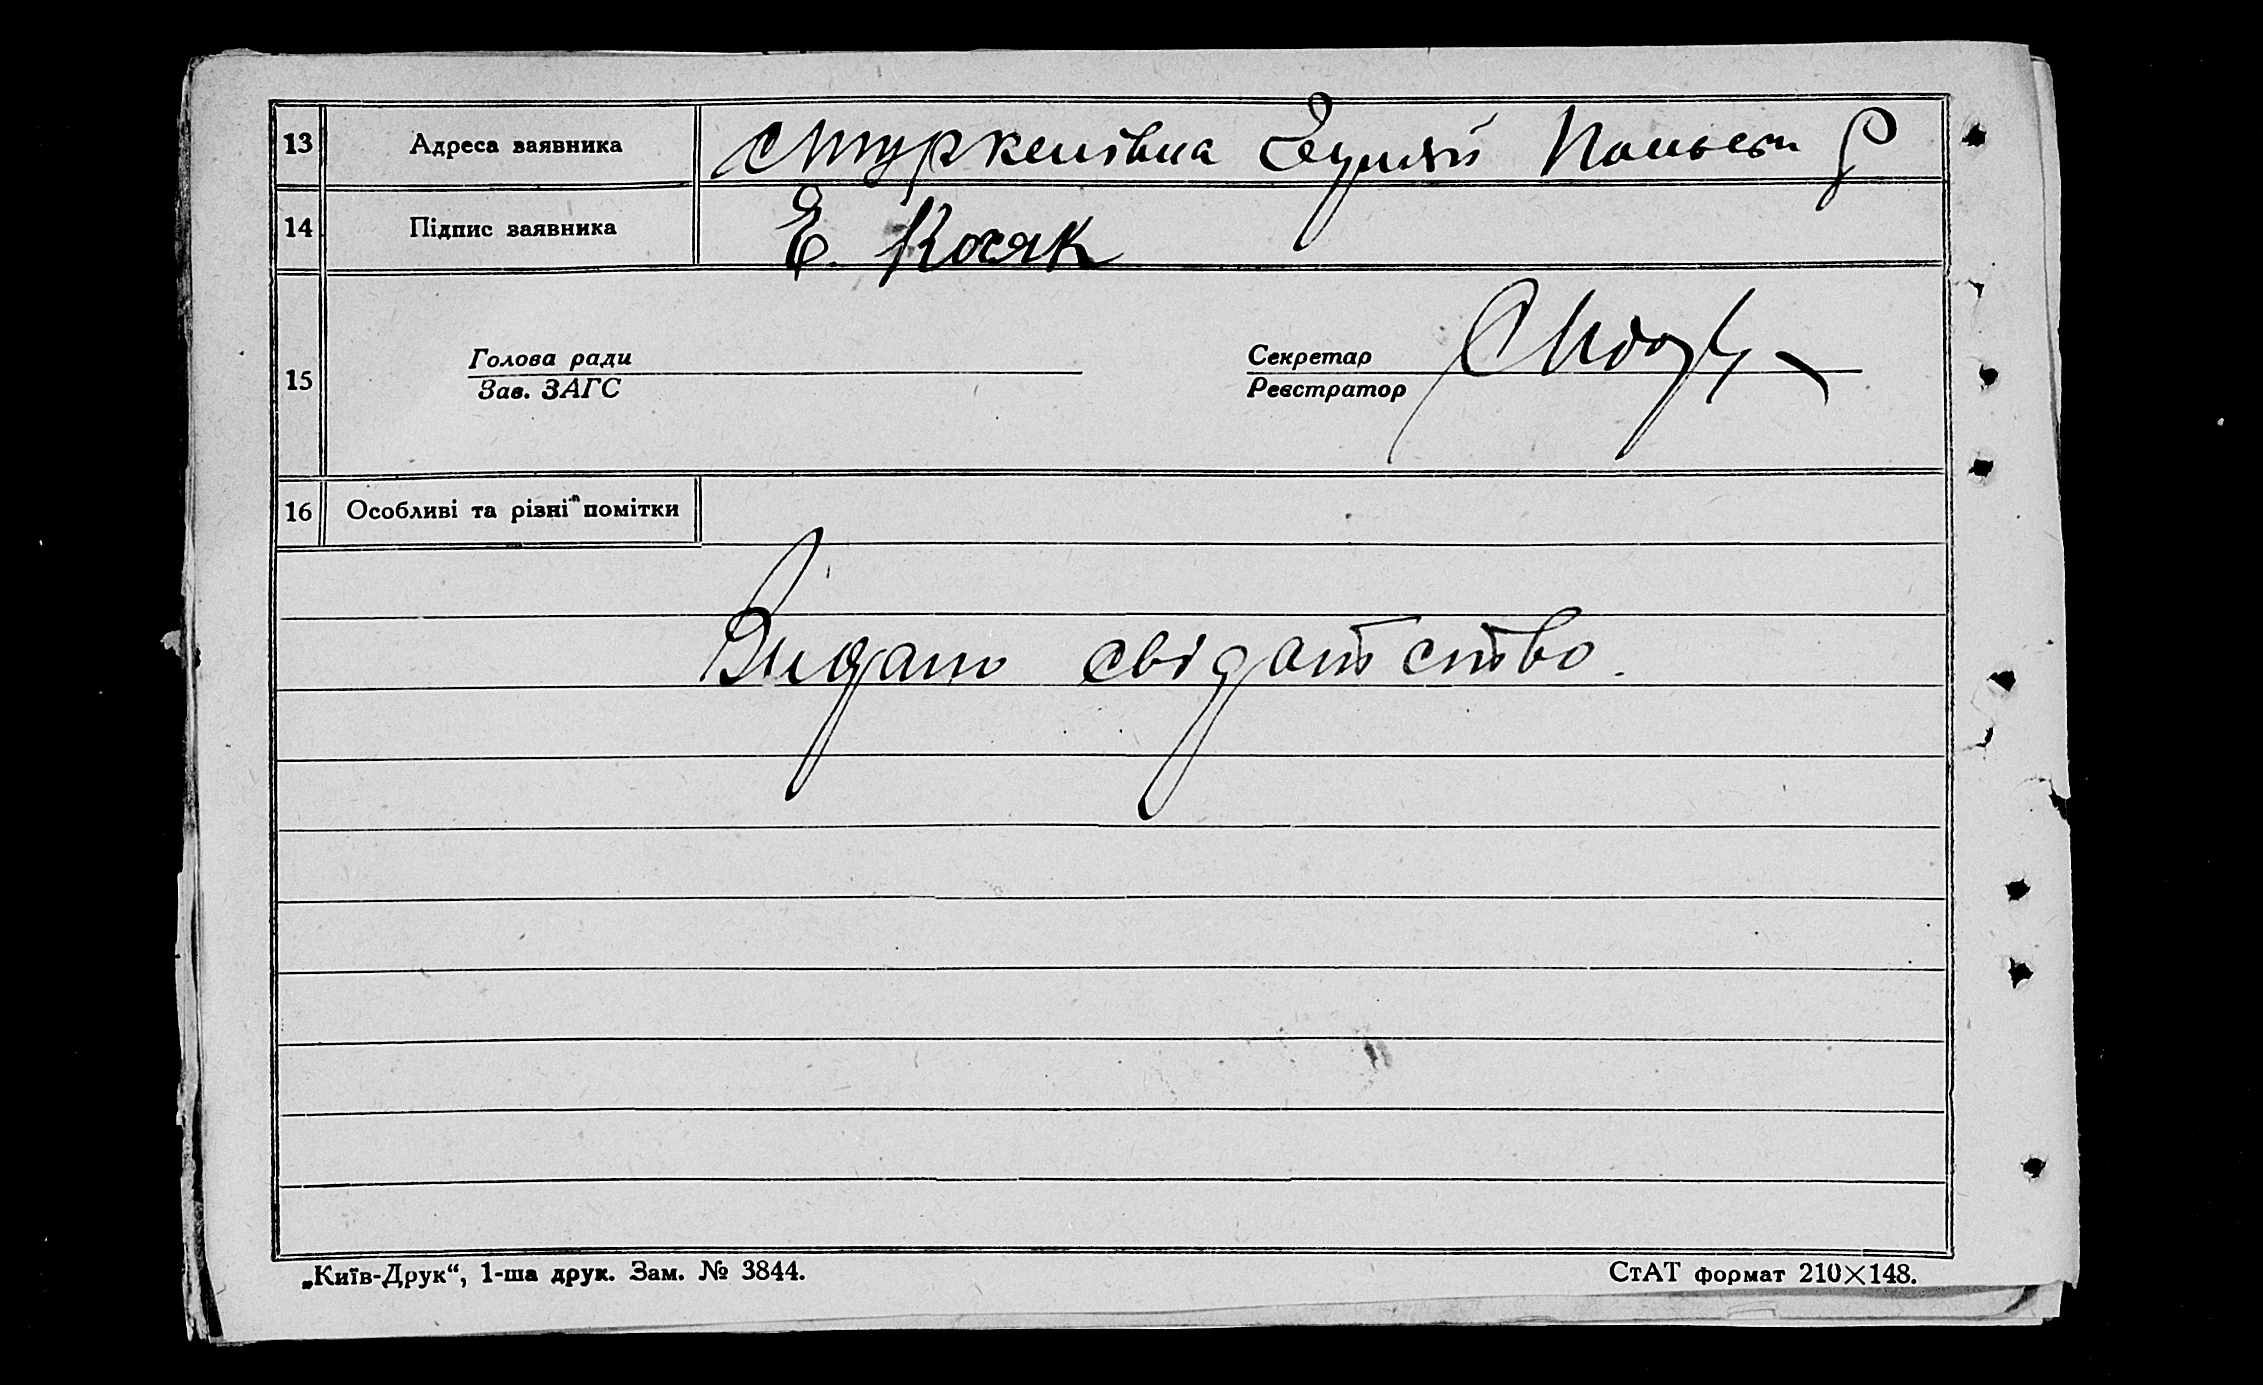 13 Адреса заявника
14 Підпис заявника Е. Косяк
15 Голова ради Секретар
Зав. ЗАГС Реєстратор
16 Особливі та різні помітки
Видано свідатство.
„Київ-Друк“, 1-ша друк. Зам. № 3844. СтАТ формат 210×148.